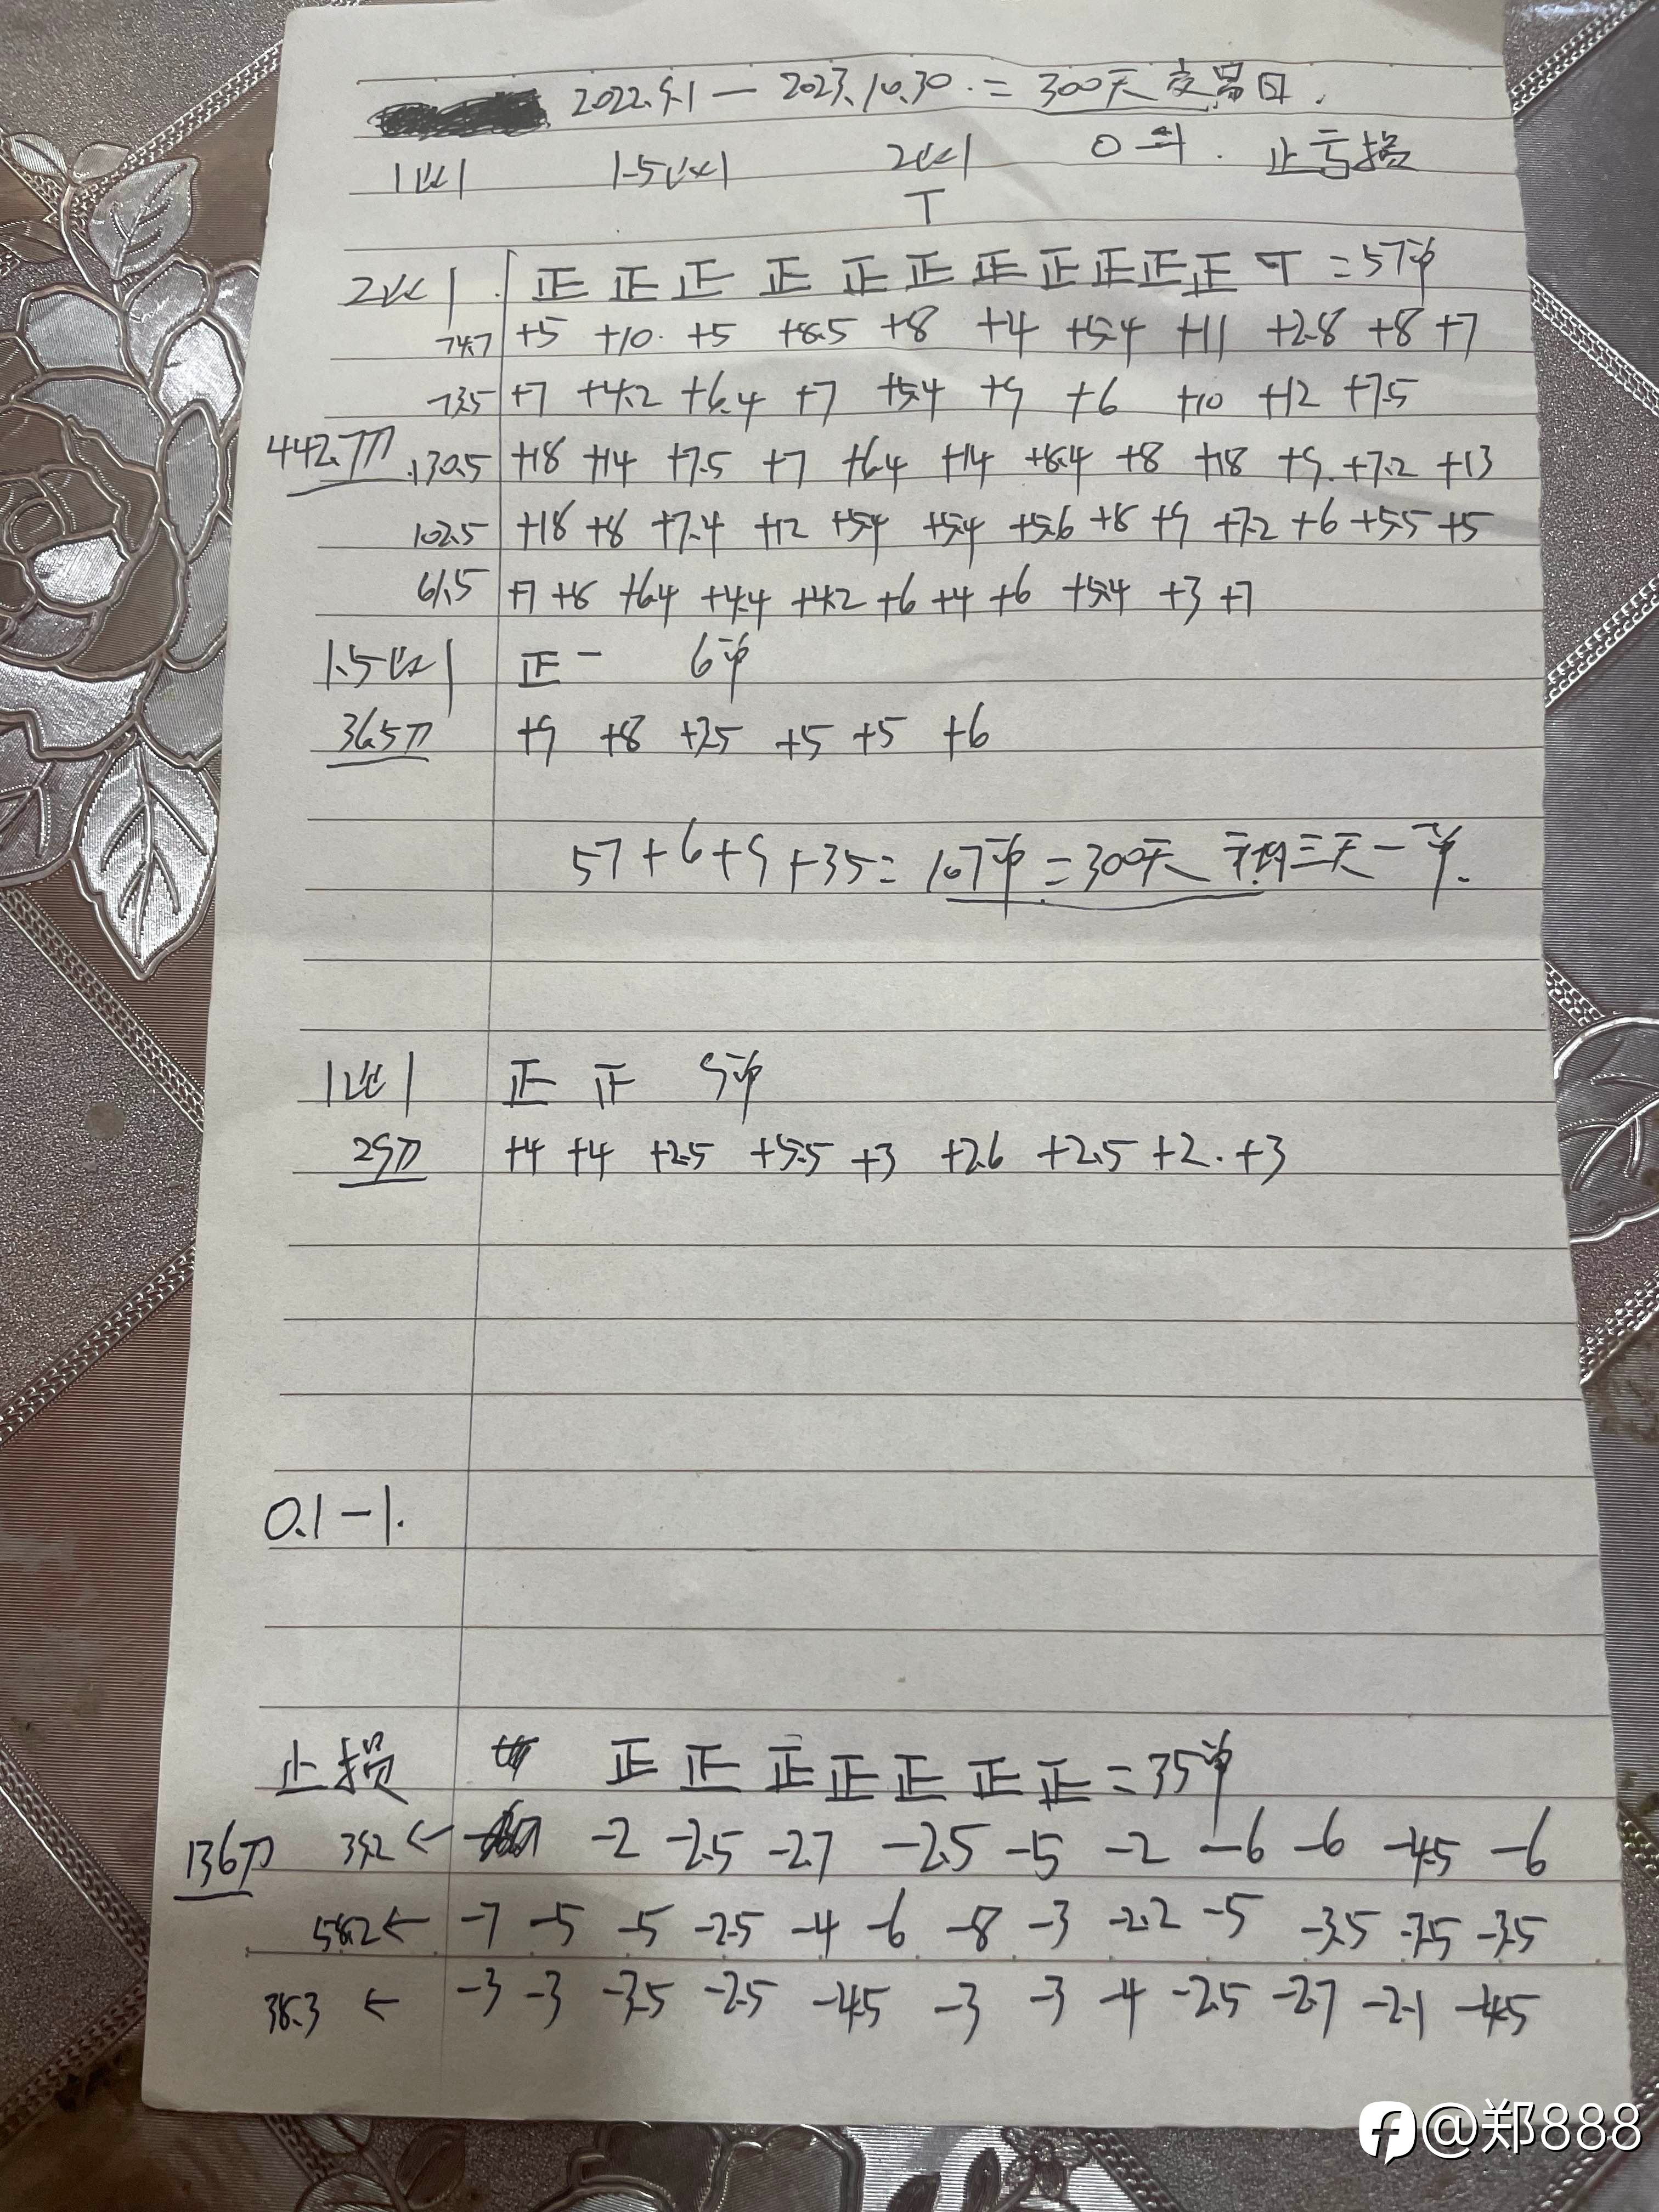 2022.9.1 — 2023.10.30. = 300天交易日.
1比1 1.5比1 2比1 0-1. 止亏损
T
2比1 正 正 正 正 正 正 正 正 正 正 正 T = 57单
74.7 +5 +10. +5 +8.5 +8 +4 +5.4 +11 +2.8 +8 +7
73.5 +7 +4.2 +6.4 +7 +5.4 +9 +6 +10 +12 +7.5
442.7刀 130.5 +18 +14 +7.5 +7 +6.4 +14 +8.4 +8 +18 +9. +7.2 +13
102.5 +18 +8 +7.4 +12 +5.4 +5.4 +5.6 +8 +9 +7.2 +6 +5.5 +5
61.5 +7 +8 +6.4 +4.4 +4.2 +6 +4 +6 +5.4 +3 +7
1.5比1 正一 6单
36.5刀 +9 +8 +3.5 +5 +5 +6
57+6+9+35= 107单 = 300天 平均三天一单.
1比1 正 正 9单
29刀 +4 +4 +2.5 +5.5 +3 +2.6 +2.5 +2. +3
0.1-1.
止损 正 正 正 正 正 正 正 = 35单
136刀 39.2 ← -2 -2.5 -2.7 -2.5 -5 -2 -6 -6 -4.5 -6
58.2 ← -7 -5 -5 -2.5 -4 -6 -8 -3 -2.2 -5 -3.5 -3.5 -3.5
38.3 ← -3 -3 -3.5 -2.5 -4.5 -3 -3 -4 -2.5 -2.7 -2.1 -4.5
@郑888